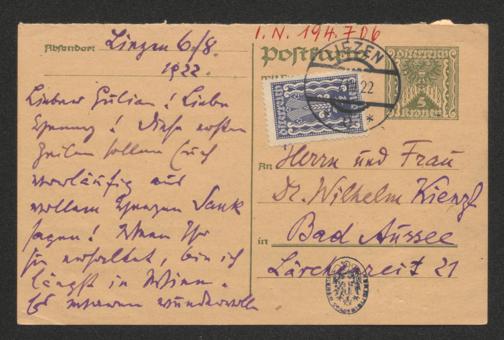 I. N. 194.706
Absendort Liezen 6/8.
1922.
Postkarte
LIEZEN
22
Österreich
5
Kronen
Österreich
Lieber Julian! Liebe
Henny! Diese ersten
Zeilen sollen Euch
vorläufig aus
vollem Herzen Dank
sagen! Wenn Ihr
sie erhaltet, bin ich
längst in Wien.
Es waren wundervolle
An Herrn und Frau
Dr. Wilhelm Kienzl
in Bad Aussee
Lärchenreit 21